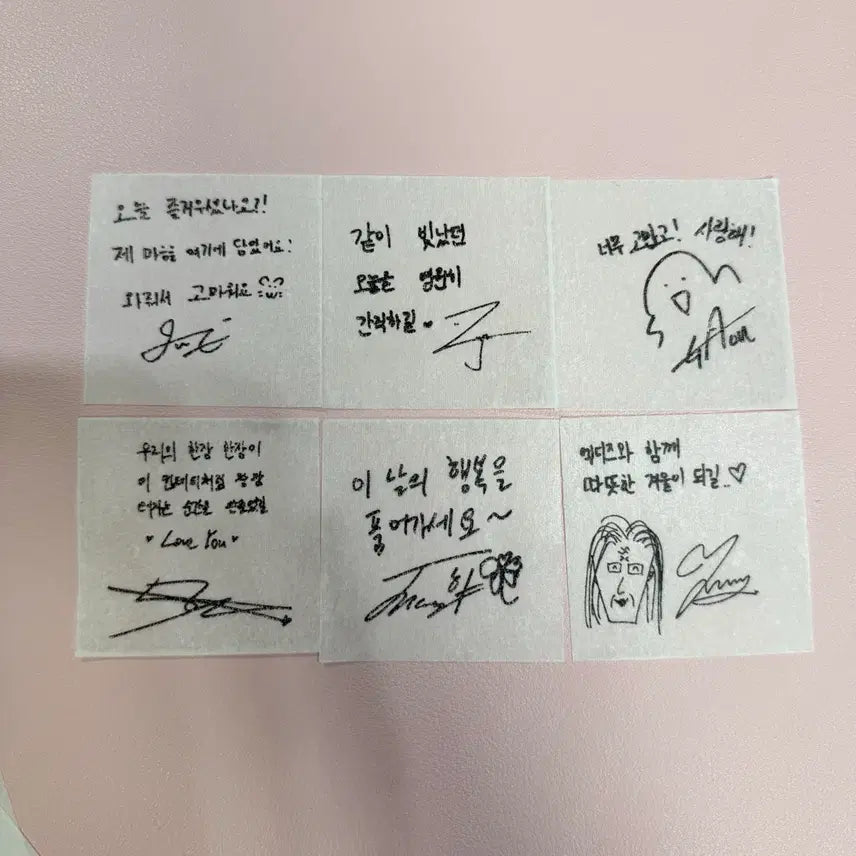 오늘 즐거우셨나요?!
제 마음을 여기에 담았어요!
와줘서 고마워요
같이 빛났던
오늘을 영원히
간직하길
너무 고맙고! 사랑해!
우리의 한장 한장이
이 컨페티처럼 팡팡
터지는 순간
Love You
이 날의 행복을
품어가세요~
엑디즈와 함께
따뜻한 겨울이 되길..♡